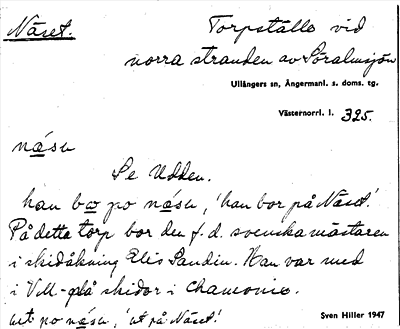 Näset.
Torpställe vid
norra stranden av Söralmsjön
Ullångers sn, Ångermanl. s. doms. tg.
Västernorrl. l. 325.
näsu
Se Udden.
han bo po näsu, 'han bor på Näset'.
På detta torp bor den f.d. svenska mästaren
i skidåkning Elis Sandin. Han var med
i VM på skidor i Chamonix.
ut po näsu, 'ut på Näset'.
Sven Hiller 1947